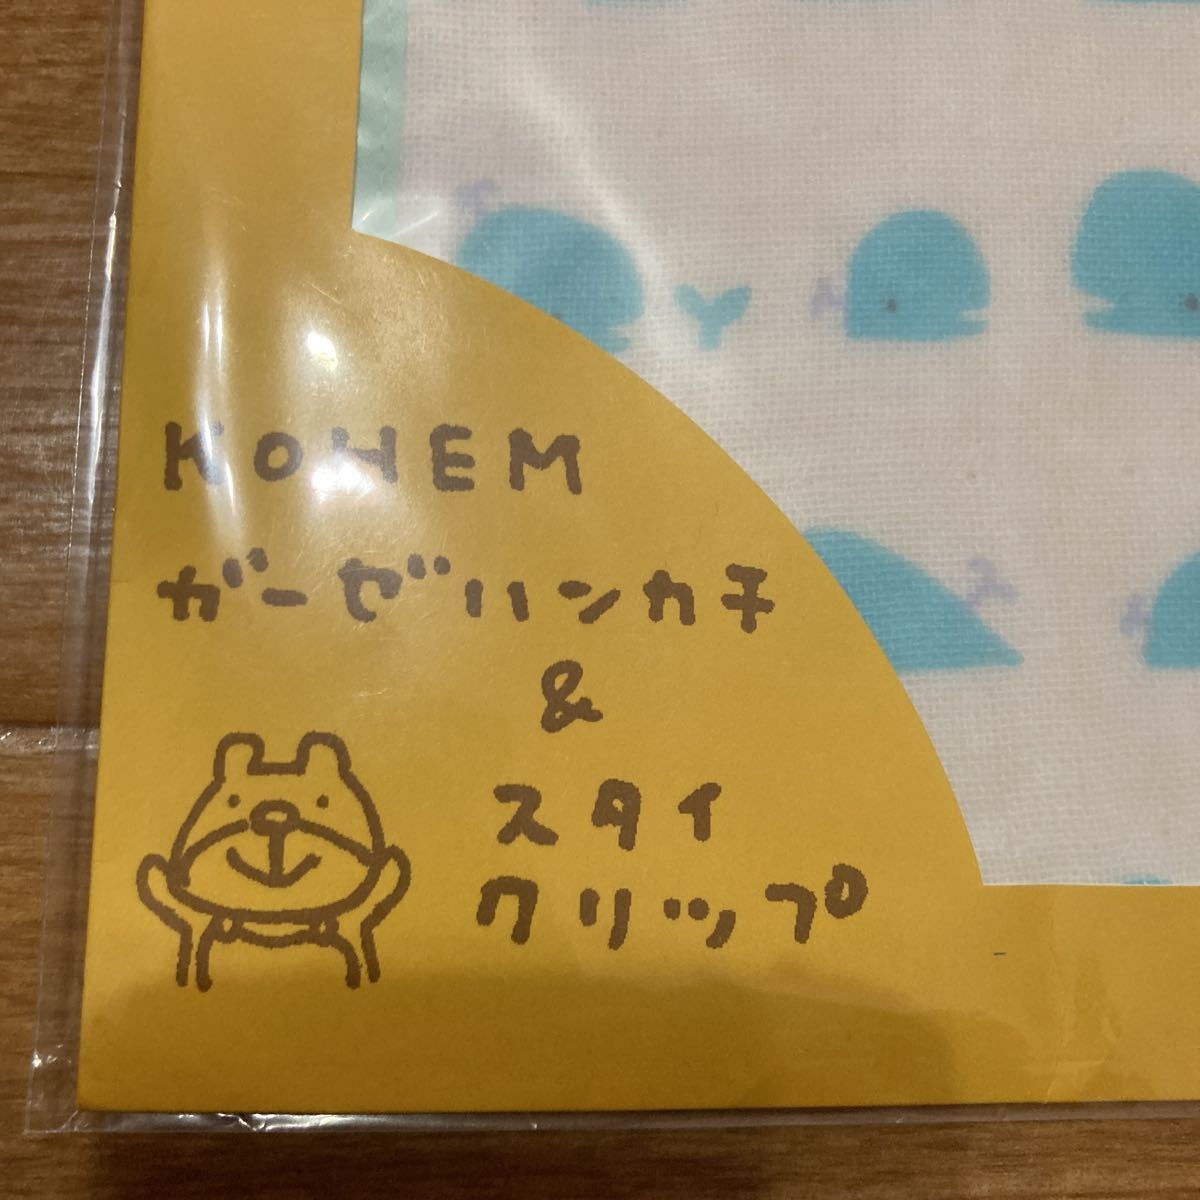 KOHEM
ガーゼハンカチ
&
スタイ
クリップ